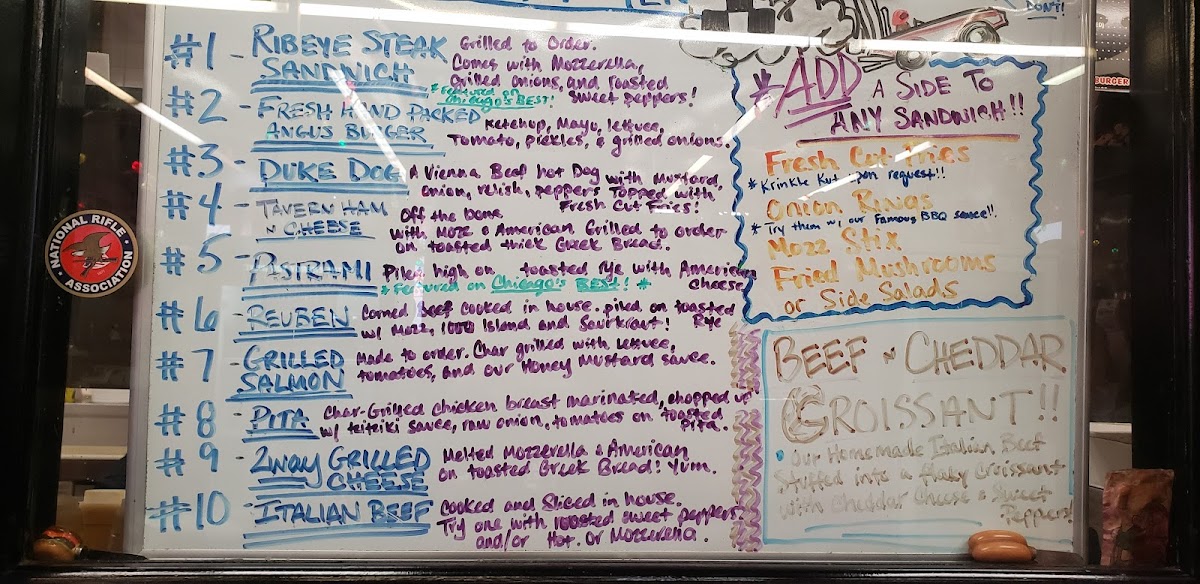 DON'T!
#1 - RIBEYE STEAK SANDWICH
Grilled to Order.
Comes with Mozzerella,
Grilled onions, and roasted
sweet peppers!
* Featured on
Chicago's BEST!
#2 - FRESH HAND PACKED
ANGUS BURGER
Ketchup, Mayo, lettuce,
Tomato, pickles, & grilled onions.
#3 - DUKE DOG
A Vienna Beef hot Dog with Mustard,
onion, relish, peppers Topped with
Fresh Cut Fries!
#4 - TAVERN HAM
N CHEESE
Off the bone
with Mozz & American Grilled to order
on toasted thick Greek Bread.
#5 - PASTRAMI
Piled high on toasted rye with American
Cheese
* Featured on Chicago's BEST! *
#6 - REUBEN
Corned Beef cooked in house. piled on toasted
Rye
w/ Mozz, 1000 Island and Saurkraut!
#7 - GRILLED
SALMON
Made to order. Char grilled with lettuce,
tomatoes, and our Honey Mustard sauce.
#8 - PITA
Char-Grilled chicken breast marinated, chopped up
w/ tzitziki sauce, raw onion, tomatoes on toasted
pita.
#9 - 2WAY GRILLED
CHEESE
Melted Mozzerella & American
on toasted Greek Bread! Yum.
#10 - ITALIAN BEEF
Cooked and Sliced in house.
Try one with roasted sweet peppers
and/or Hot. Or Mozzerella.
* ADD A SIDE TO
ANY SANDWICH!!
Fresh Cut Fries
* Krinkle Kut upon request!!
Onion Rings
* Try them w/ our Famous BBQ sauce!!
Mozz Stix
Fried Mushrooms
or Side Salads
BEEF N CHEDDAR
CROISSANT!!
• Our Homemade Italian Beef
Stuffed into a flaky Croissant
with Cheddar Cheese & Sweet
Peppers!
NATIONAL RIFLE
ASSOCIATION
BURGER